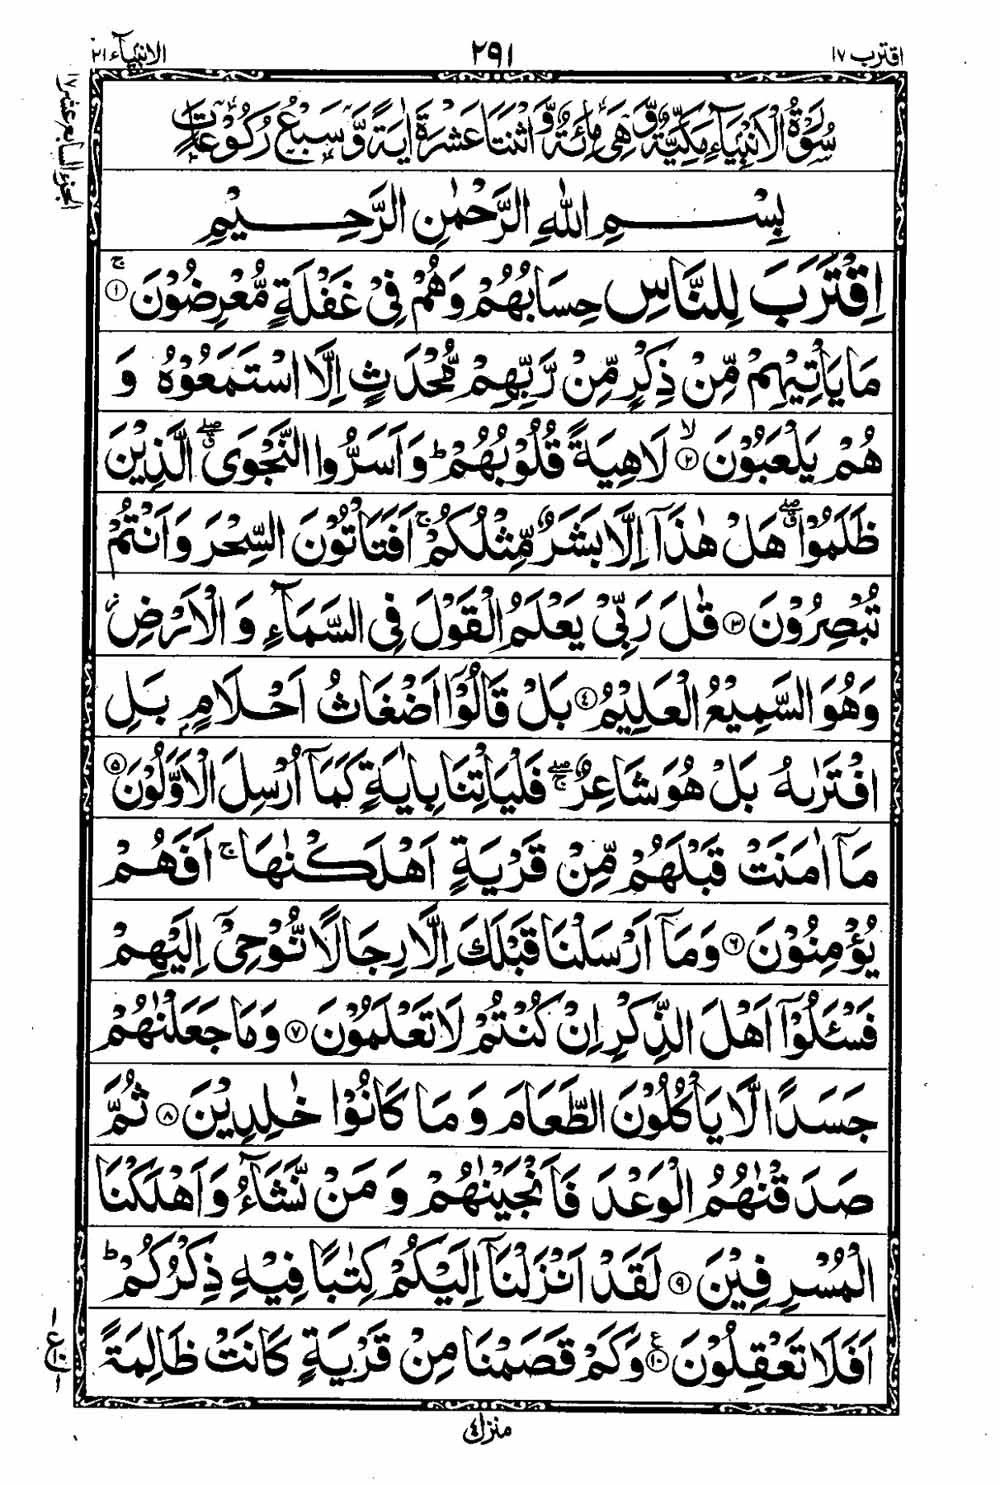 اقترب ١٧
٢٩١
الانبیآء ٢١
الجزء السابع عشر ١٧
سُوْرَةُ الْاَنْۢبِیَآءِ مَكِّیَّةٌ وَّهِیَ مِائَةٌ وَّ اثْنَتَا عَشْرَةَ اٰیَةً وَّ سَبْعُ رُكُوْعَاتٍ
بِسْمِ اللّٰهِ الرَّحْمٰنِ الرَّحِیْمِ
اِقْتَرَبَ لِلنَّاسِ حِسَابُهُمْ وَهُمْ فِیْ غَفْلَةٍ مُّعْرِضُوْنَ ۚ﴿۱﴾
مَا یَاْتِیْهِمْ مِّنْ ذِكْرٍ مِّنْ رَّبِّهِمْ مُّحْدَثٍ اِلَّا اسْتَمَعُوْهُ وَ
هُمْ یَلْعَبُوْنَ ۙ﴿۲﴾ لَاهِیَةً قُلُوْبُهُمْ ؕ وَاَسَرُّوا النَّجْوَی ۖۗ الَّذِیْنَ
ظَلَمُوْا ۖۗ هَلْ هٰذَاۤ اِلَّا بَشَرٌ مِّثْلُكُمْ ۚ اَفَتَاْتُوْنَ السِّحْرَ وَاَنْتُمْ
تُبْصِرُوْنَ ﴿۳﴾ قٰلَ رَبِّیْ یَعْلَمُ الْقَوْلَ فِی السَّمَآءِ وَالْاَرْضِ ؗ
وَهُوَ السَّمِیْعُ الْعَلِیْمُ ﴿۴﴾ بَلْ قَالُوْۤا اَضْغَاثُ اَحْلَامٍۭ بَلِ
افْتَرٰىهُ بَلْ هُوَ شَاعِرٌ ۖۚ فَلْیَاْتِنَا بِاٰیَةٍ كَمَاۤ اُرْسِلَ الْاَوَّلُوْنَ ﴿۵﴾
مَاۤ اٰمَنَتْ قَبْلَهُمْ مِّنْ قَرْیَةٍ اَهْلَكْنٰهَا ۚ اَفَهُمْ
یُؤْمِنُوْنَ ﴿۶﴾ وَمَاۤ اَرْسَلْنَا قَبْلَكَ اِلَّا رِجَالًا نُّوْحِیْۤ اِلَیْهِمْ
فَسْـَٔلُوْۤا اَهْلَ الذِّكْرِ اِنْ كُنْتُمْ لَا تَعْلَمُوْنَ ﴿۷﴾ وَمَا جَعَلْنٰهُمْ
جَسَدًا لَّا یَاْكُلُوْنَ الطَّعَامَ وَمَا كَانُوْا خٰلِدِیْنَ ﴿۸﴾ ثُمَّ
صَدَقْنٰهُمُ الْوَعْدَ فَاَنْجَیْنٰهُمْ وَمَنْ نَّشَآءُ وَاَهْلَكْنَا
الْمُسْرِفِیْنَ ﴿۹﴾ لَقَدْ اَنْزَلْنَاۤ اِلَیْكُمْ كِتٰبًا فِیْهِ ذِكْرُكُمْ ؕ
اَفَلَا تَعْقِلُوْنَ ﴿۱۰﴾ ع وَكَمْ قَصَمْنَا مِنْ قَرْیَةٍ كَانَتْ ظَالِمَةً
منزل ٤